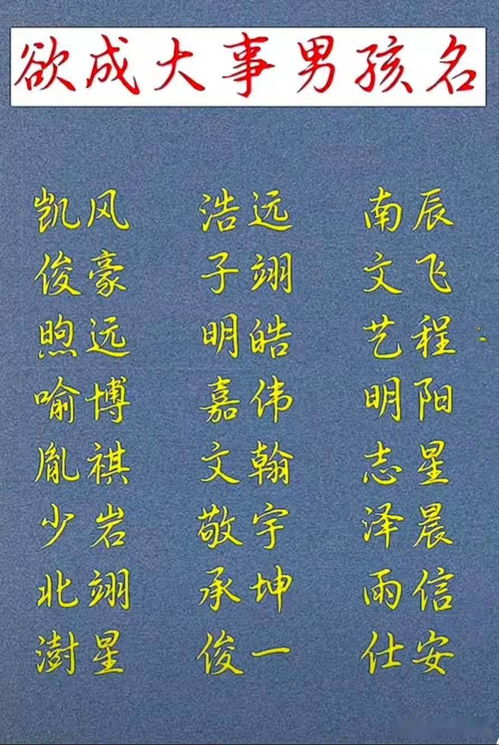 欲成大事男孩名
凯风 浩远 南辰
俊豪 子翊 文飞
煦远 明皓 艺程
喻博 嘉伟 明阳
胤祺 文翰 志星
少岩 敬宇 泽晨
北翊 承坤 雨信
澍星 俊一 仕安